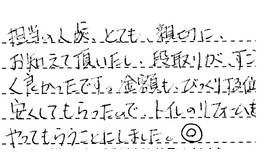 担当の人が、とても、親切に、
お知えて頂いたし、段取りが、すご
く良かったです。金額も、びっくり位
安くしてもらったので、トイレのリフォームも
やってもらうことにしました。◎